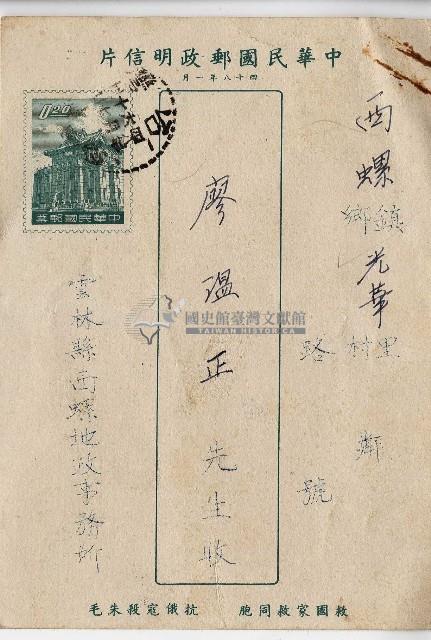 中華民國郵政明信片
四十八年一月
0.20
中華民國郵政
西螺鎮
鄉
光華里
村
鄰
路
號
廖溫正先生收
雲林縣西螺地政事務所
國史館臺灣文獻館
TAIWAN HISTORICA
救國家救同胞
抗俄寇殺朱毛